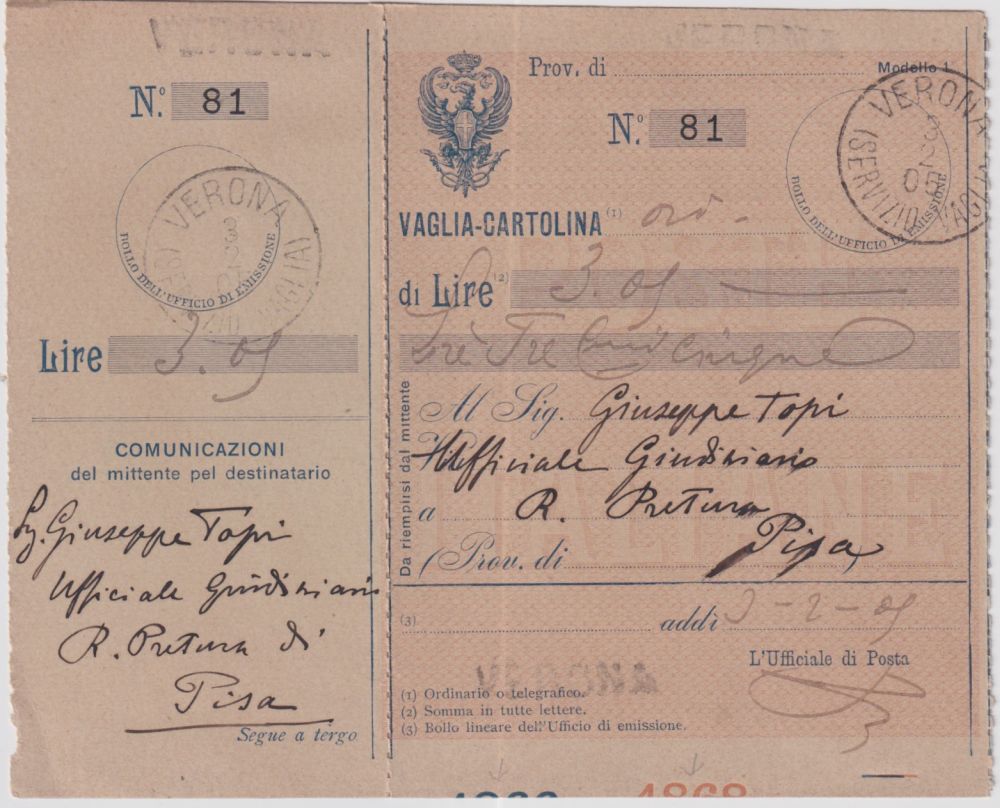 N.º 81
VERONA
3
2
BOLLO DELL'UFFICIO DI EMISSIONE
Lire 3.05
COMUNICAZIONI
del mittente pel destinatario
Sig. Giuseppe Topi
Ufficiale Giudiziario
R. Pretura di
Pisa
Segue a tergo
Prov. di
Modello 1
N.º 81
VERONA
(SERVIZIO VAGLIA)
BOLLO DELL'UFFICIO DI EMISSIONE
VAGLIA-CARTOLINA (1) ord.
di Lire (2) 3.05
Tre Cent cinque
Da riempirsi dal mittente
Al Sig. Giuseppe Topi
Ufficiale Giudiziario
a R. Pretura
(Prov. di Pisa)
(3) addì 3-2-05
L'Ufficiale di Posta
(1) Ordinario o telegrafico.
(2) Somma in tutte lettere.
(3) Bollo lineare dell'Ufficio di emissione.
4868